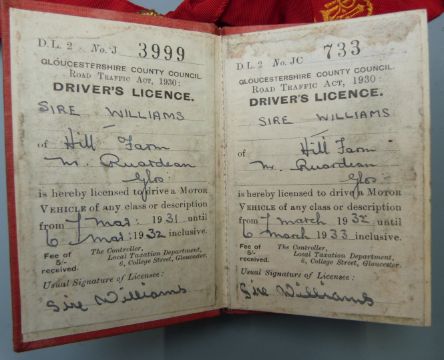 D.L. 2 No. J 3999
GLOUCESTERSHIRE COUNTY COUNCIL
ROAD TRAFFIC ACT, 1930:
DRIVER'S LICENCE.
SIRE WILLIAMS
of Hill Farm
Nr. Ruardean
Glos:
is hereby licensed to drive a MOTOR
VEHICLE of any class or description
from 7 Mar: 1931 until
6 Mar: 1932 inclusive.
Fee of
5/-
received.
The Controller,
Local Taxation Department,
6, College Street, Gloucester.
Usual Signature of Licensee:
Sire Williams
D.L. 2 No. JC 733
GLOUCESTERSHIRE COUNTY COUNCIL.
ROAD TRAFFIC ACT, 1930:
DRIVER'S LICENCE.
SIRE WILLIAMS
of Hill Farm
Nr. Ruardean
Glos:
is hereby licensed to drive a MOTOR
VEHICLE of any class or description
from 7 March 1932 until
6 March 1933 inclusive.
Fee of
5/-
received.
The Controller,
Local Taxation Department,
6, College Street, Gloucester.
Usual Signature of Licensee:
Sire Williams